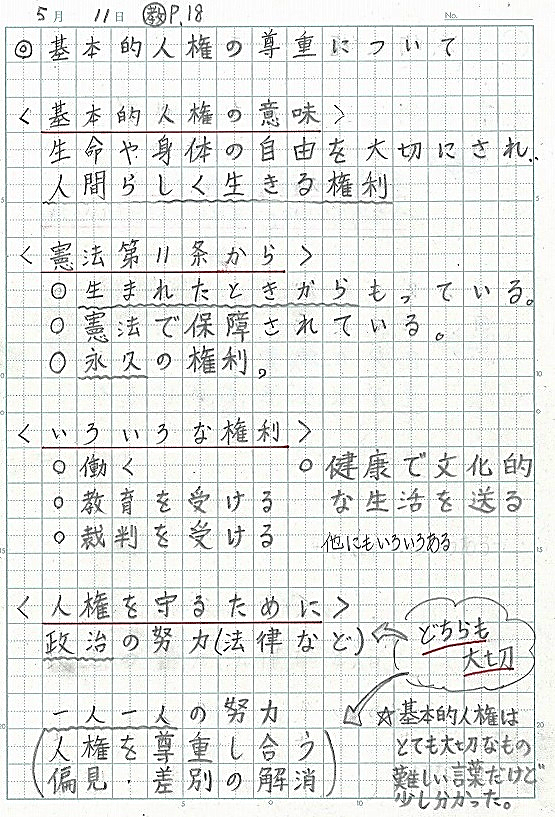 5月 11日 教P.18
No.
◎基本的人権の尊重について
<基本的人権の意味>
生命や身体の自由を大切にされ、
人間らしく生きる権利
<憲法第11条から>
○生まれたときからもっている。
○憲法で保障されている。
○永久の権利。
<いろいろな権利>
○働く
○教育を受ける
○裁判を受ける
○健康で文化的
な生活を送る
他にもいろいろある
<人権を守るために>
政治の努力(法律など)
どちらも
大切
一人一人の努力
(人権を尊重し合う
偏見・差別の解消)
☆基本的人権は
とても大切なもの
難しい言葉だけど
少し分かった。